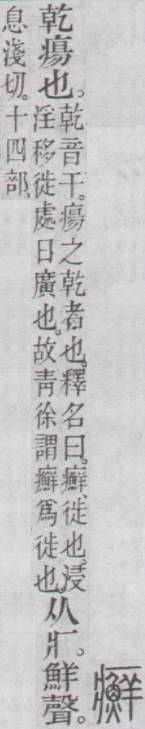 癬
乾瘍也。
乾音干。瘍之乾者也。釋名曰。癬、徙也。浸
淫移徙處日廣也。故青徐謂癬爲徙也。
从疒。鮮聲。
息淺切。十四部。